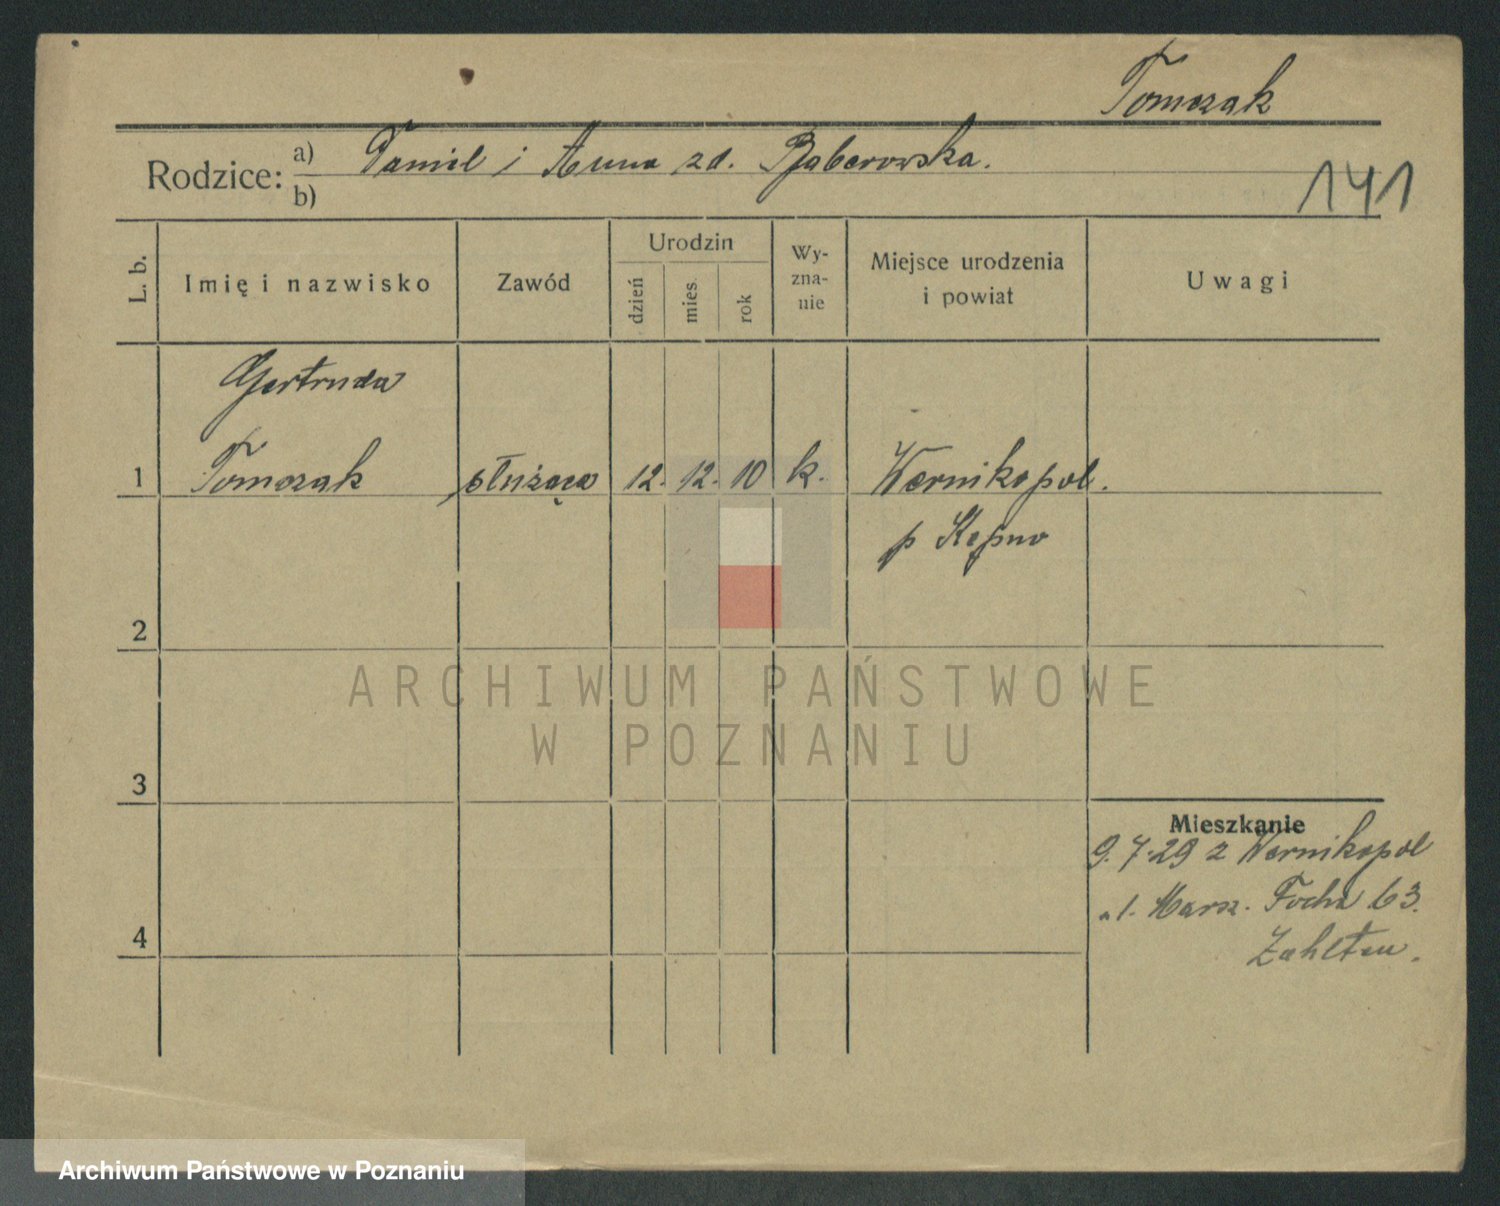 Tomczak
Rodzice: a) Daniel i Anna zd. Baberowska.
b)
141
L. b.
Imię i nazwisko
Zawód
Urodzin
dzień
mies.
rok
Wy-
zna-
nie
Miejsce urodzenia
i powiat
Uwagi
Gertruda
1 Tomczak służąca 12. 12. 10 k. Wernikopol.
p Kępno
2
ARCHIWUM PAŃSTWOWE
W POZNANIU
3
Mieszkanie
9.7.29 z Wernikopol
ul. Marsz. Focha 63.
4
Archiwum Państwowe w Poznaniu